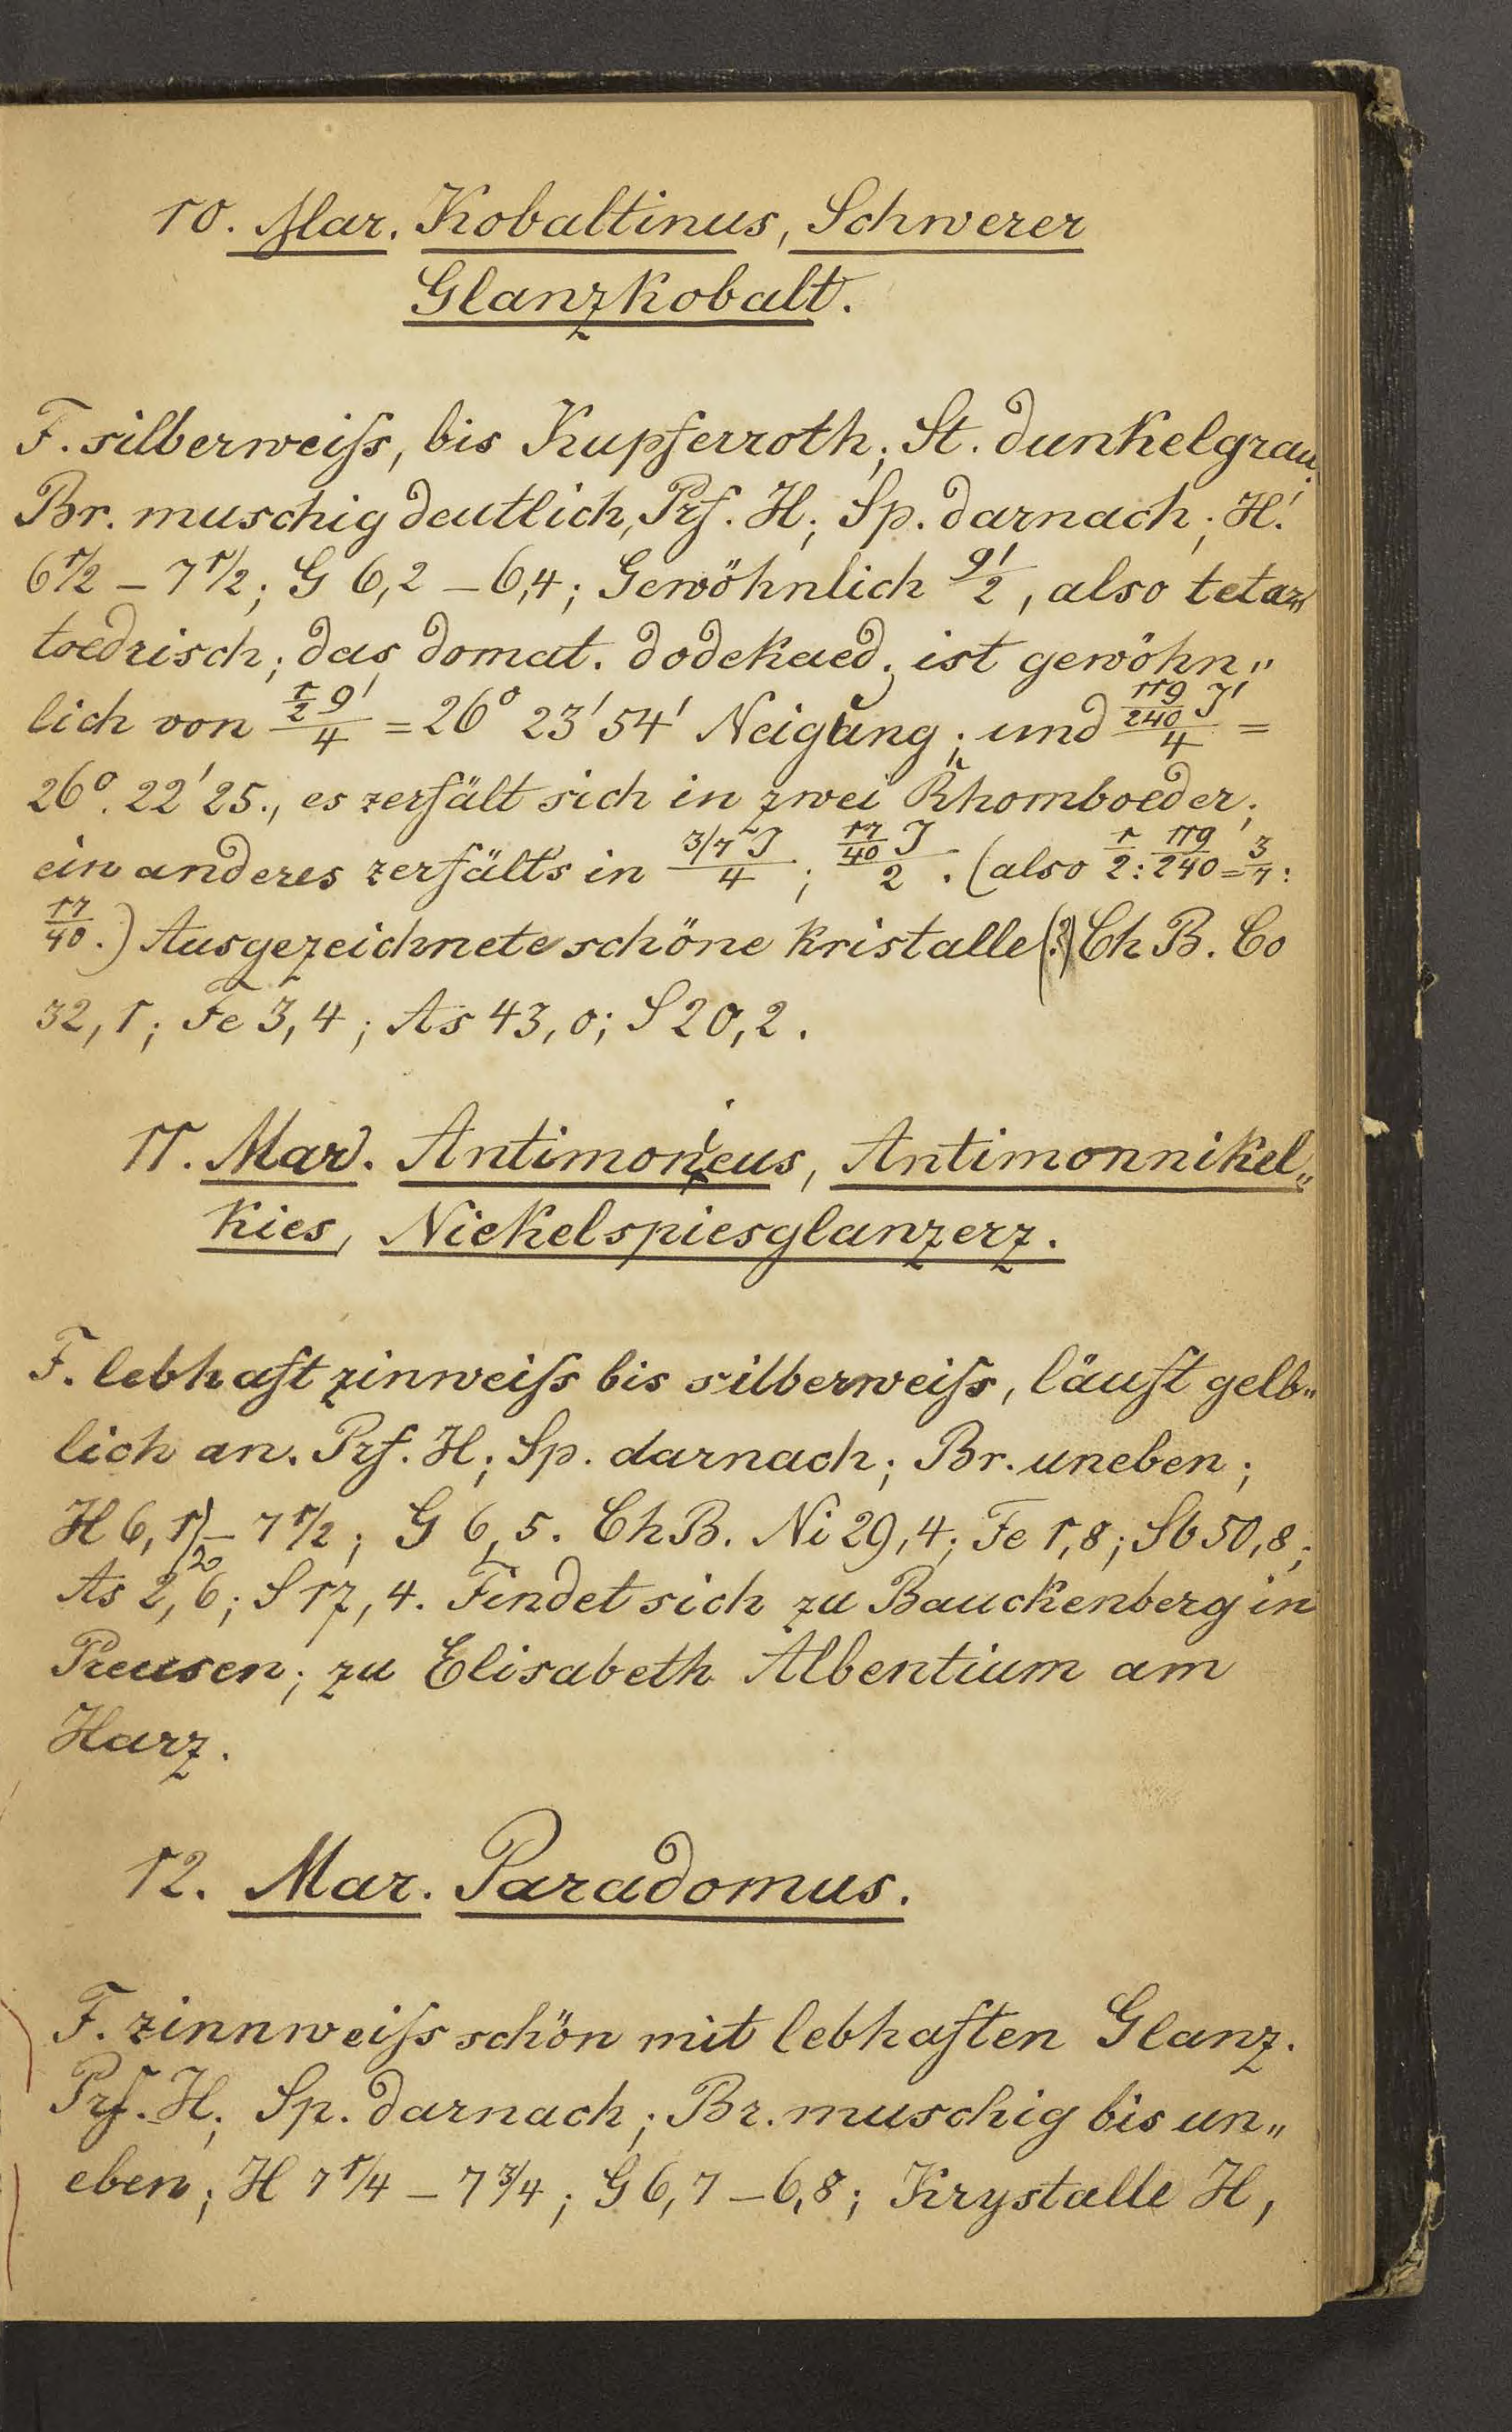 10. Mar. Kobaltinus, Schwerer
Glanzkobalt.
F. silberweiſs, bis Kupferroth; St. dunkelgrau.
Br. muschig deutlich, Prf. H; Sp. darnach; H.
6 1/2 – 7 1/2; G 6,2 – 6,4; Gewöhnlich 9'/2, also tetar„
toedrisch; das domat. dodekaed; ist gewöhn„
lich von (1/2 9')/4 = 26° 23' 54' Neigŭng; und (119/240 J')/4 =
26°. 22' 25., es zerfält sich in zwei Rhomboeder;
ein anderes zerfält's in (3/7 J)/4; (17/40 J)/2. (also 1/2 : 119/240 = 3/7 :
17/40.) Ausgezeichnete schöne Kristalle (?) Ch B. Co
32,1; Fe 3,4; As 43,0; S 20,2.
11. Mar. Antimonieus, Antimonnikel„
kies, Nickelspiesglanzerz.
F. lebhaft zinweiſs bis silberweiſs, läuft gelb„
lich an. Prf. H; Sp. darnach; Br. uneben;
H 6,1/2 – 7 1/2; G 6,5. Ch B. Ni 29,4; Fe 1,8; Sb 50,8;
As 2,6; S 17,4. Findet sich zu Bauckenberg in
Preusen; zu Elisabeth Albentium am
Harz.
12. Mar. Paradomus.
F. zinnweiſs schön mit lebhaften Glanz.
Prf. H; Sp. darnach; Br. muschig bis un„
eben; H 7 1/4 – 7 3/4; G 6,7 – 6,8; Krystalle H,